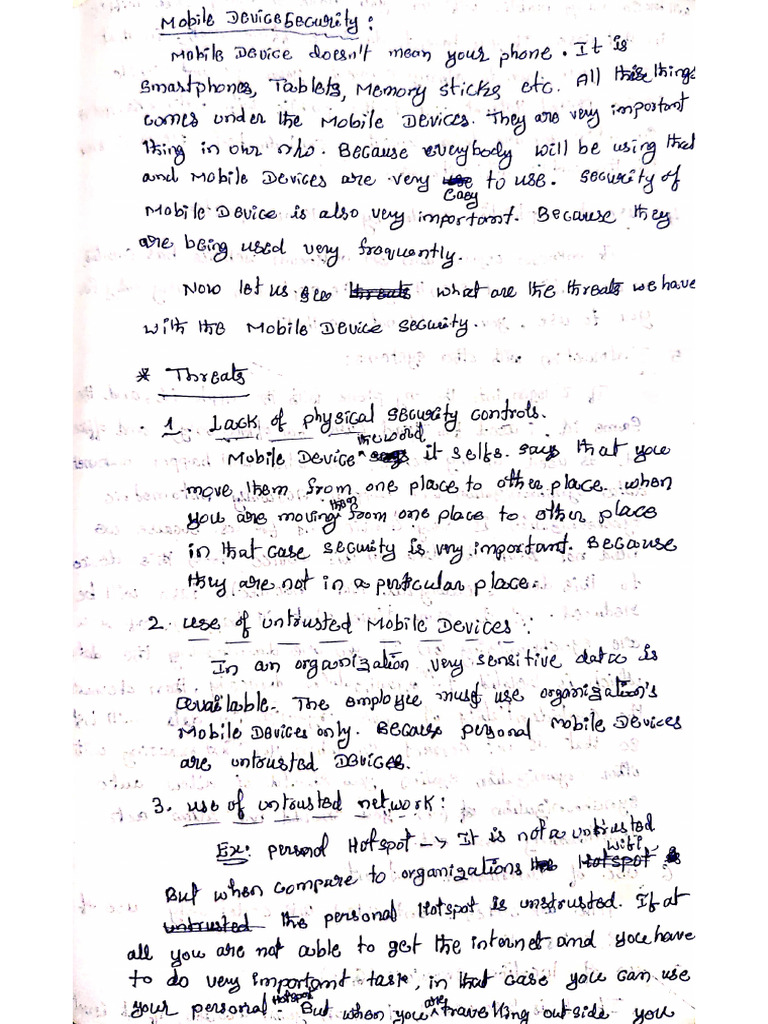 Mobile Device Security:
Mobile Device doesn't mean your phone. It is
Smartphones, Tablets, Memory sticks etc. All this things
comes under the Mobile Devices. They are very important
thing in our        . Because everybody will be using that
and Mobile Devices are very easy to use. Security of
Mobile Device is also very important. Because they
are being used very frequently.
Now let us see threats what are the threats we have
with the Mobile Device security.
* Threats
1. Lack of physical security controls.
Mobile Device the word it selfs. says that you
move them from one place to other place. when
you are moving them from one place to other place
in that case security is very important. Because
they are not in a perticular place.
2. use of untrusted Mobile Devices:
In an organization very sensitive data is
available. The employee must use organization's
Mobile Devices only. Because personal Mobile Devices
are untrusted Devices.
3. use of untrusted network:
Ex: personal Hotspot -> It is not a untrusted
But when compare to organizations wifi Hotspot is
untrusted the personal Hotspot is unstrusted. If at
all you are not able to get the internet and you have
to do very important task, in that case you can use
your personal Hotspot. But when you are travelling outside you